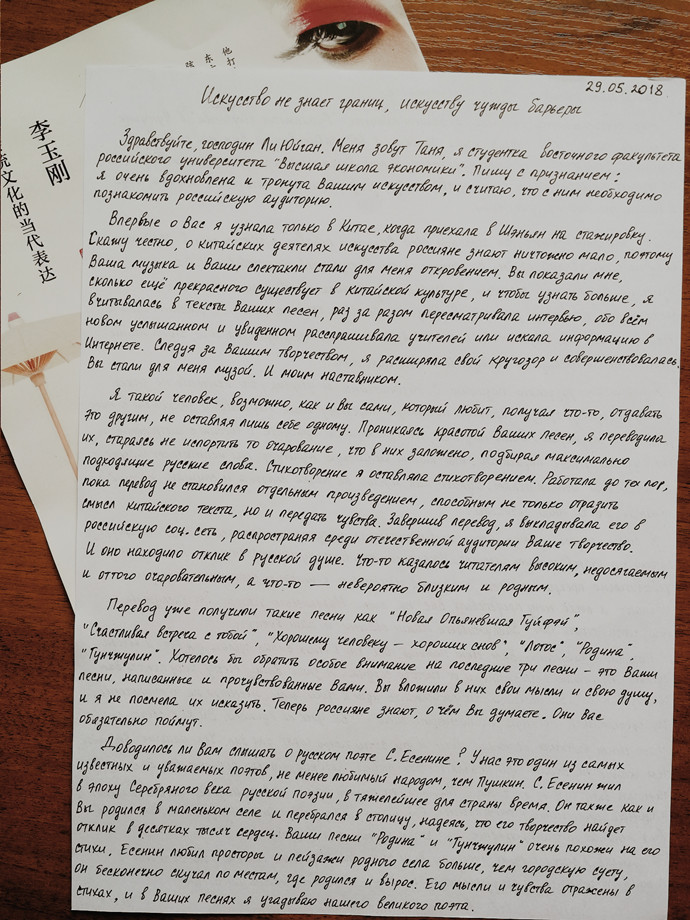 李玉刚
统文化的当代表达
他打
东
29.05.2018
Искусство не знает границ, искусству чужды барьеры
Здравствуйте, господин Ли Юйган. Меня зовут Таня, я студентка восточного факультета
российского университета "Высшая школа экономики". Пишу с признанием:
я очень вдохновлена и тронута Вашим искусством, и считаю, что с ним необходимо
познакомить российскую аудиторию.
Впервые о Вас я узнала только в Китае, когда приехала в Шэньян на стажировку.
Скажу честно, о китайских деятелях искусства россияне знают ничтожно мало, поэтому
Ваша музыка и Ваши спектакли стали для меня откровением. Вы показали мне,
сколько ещё прекрасного существует в китайской культуре, и чтобы узнать больше, я
вчитывалась в тексты Ваших песен, раз за разом пересматривала интервью, обо всём
новом услышанном и увиденном расспрашивала учителей или искала информацию в
Интернете. Следуя за Вашим творчеством, я расширяла свой кругозор и совершенствовалась.
Вы стали для меня музой. И моим наставником.
Я такой человек, возможно, как и Вы сами, который любит, получая что-то, отдавать
это другим, не оставляя лишь себе одному. Проникаясь красотой Ваших песен, я переводила
их, стараясь не испортить то очарование, что в них заложено, подбирая максимально
подходящие русские слова. Стихотворение я оставляла стихотворением. Работала до тех пор,
пока перевод не становился отдельным произведением, способным не только отразить
смысл китайского текста, но и передать чувства. Завершив перевод, я выкладывала его в
российскую соц. сеть, распространяя среди отечественной аудитории Ваше творчество.
И оно находило отклик в русской душе. Что-то казалось читателям высоким, недосягаемым
и оттого очаровательным, а что-то — невероятно близким и родным.
Перевод уже получили такие песни как "Новая Опьяневшая Гуйфэй",
"Счастливая встреча с тобой", "Хорошему человеку – хороших снов", "Лотос", "Родина",
"Гунчжулин". Хотелось бы обратить особое внимание на последние три песни – это Ваши
песни, написанные и прочувствованные Вами. Вы вложили в них свои мысли и свою душу,
и я не посмела их исказить. Теперь россияне знают, о чём Вы думаете. Они Вас
обязательно поймут.
Доводилось ли Вам слышать о русском поэте С. Есенине? У нас это один из самых
известных и уважаемых поэтов, не менее любимый народом, чем Пушкин. С. Есенин жил
в эпоху Серебряного века русской поэзии, в тяжелейшее для страны время. Он также как и
Вы родился в маленьком селе и перебрался в столицу, надеясь, что его творчество найдет
отклик в десятках тысяч сердец. Ваши песни "Родина" и "Гунчжулин" очень похожи на его
стихи. Есенин любил просторы и пейзажи родного села больше, чем городскую суету,
он бесконечно скучал по местам, где родился и вырос. Его мысли и чувства отражены в
стихах, и в Ваших песнях я угадываю нашего великого поэта.